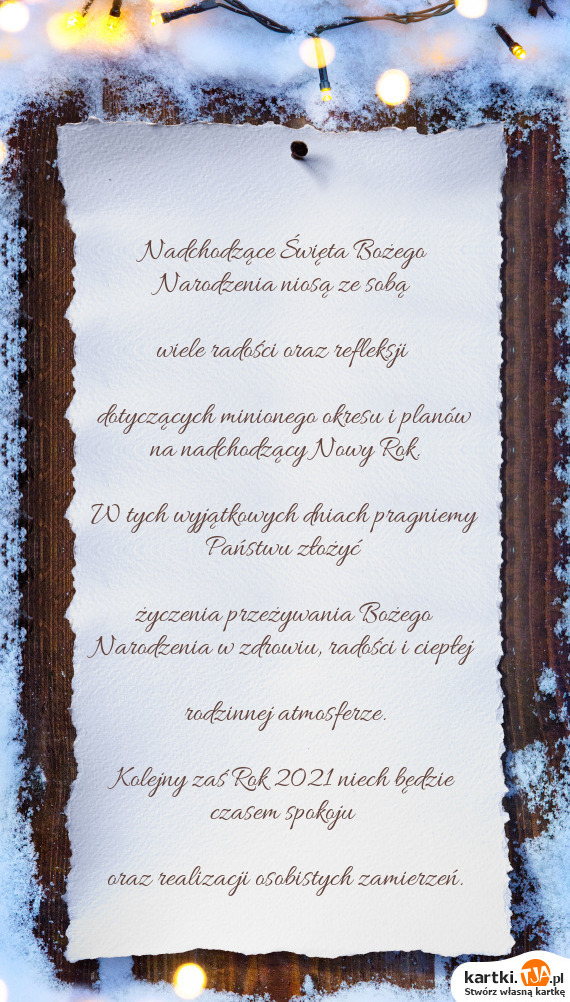 Nadchodzące Święta Bożego
Narodzenia niosą ze sobą
wiele radości oraz refleksji
dotyczących minionego okresu i planów
na nadchodzący Nowy Rok.
W tych wyjątkowych dniach pragniemy
Państwu złożyć
życzenia przeżywania Bożego
Narodzenia w zdrowiu, radości i ciepłej
rodzinnej atmosferze.
Kolejny zaś Rok 2021 niech będzie
czasem spokoju
oraz realizacji osobistych zamierzeń.
kartki.TJA.pl
Stwórz własną kartkę